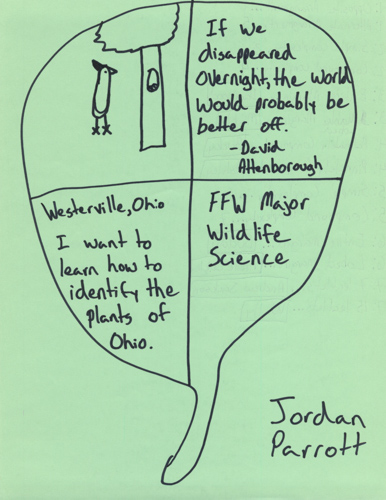 If we
disappeared
overnight, the world
would probably be
better off.
- David
Attenborough
Westerville, Ohio
I want to
learn how to
identify the
plants of
Ohio.
FFW Major
Wildlife
Science
Jordan
Parrott